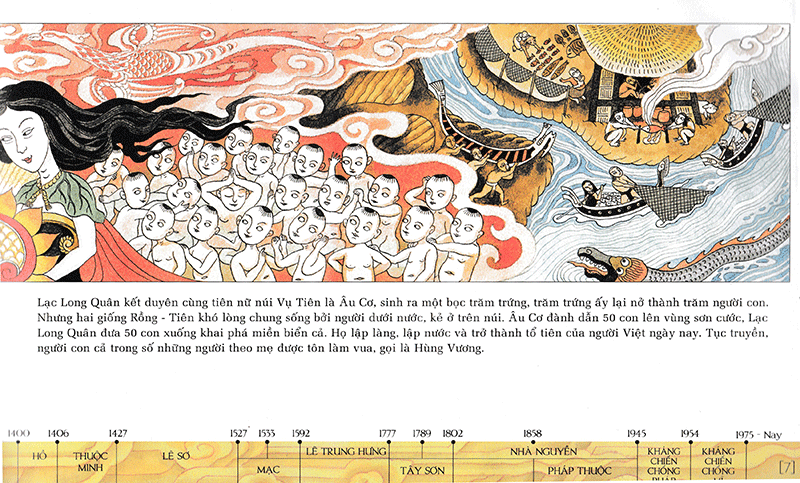 Lạc Long Quân kết duyên cùng tiên nữ núi Vụ Tiên là Âu Cơ, sinh ra một bọc trăm trứng, trăm trứng ấy lại nở thành trăm người con.
Nhưng hai giống Rồng - Tiên khó lòng chung sống bởi người dưới nước, kẻ ở trên núi. Âu Cơ đành dẫn 50 con lên vùng sơn cước, Lạc
Long Quân đưa 50 con xuống khai phá miền biển cả. Họ lập làng, lập nước và trở thành tổ tiên của người Việt ngày nay. Tục truyền,
người con cả trong số những người theo mẹ được tôn làm vua, gọi là Hùng Vương.
1400 1406 1427 1527 1533 1592 1777 1789 1802 1858 1945 1954 1975 - Nay
HỒ
THUỘC
MINH
LÊ SƠ
MẠC
LÊ TRUNG HƯNG
TÂY SƠN
NHÀ NGUYỄN
PHÁP THUỘC
KHÁNG
CHIẾN
CHỐNG
PHÁP
KHÁNG
CHIẾN
CHỐNG
[7]